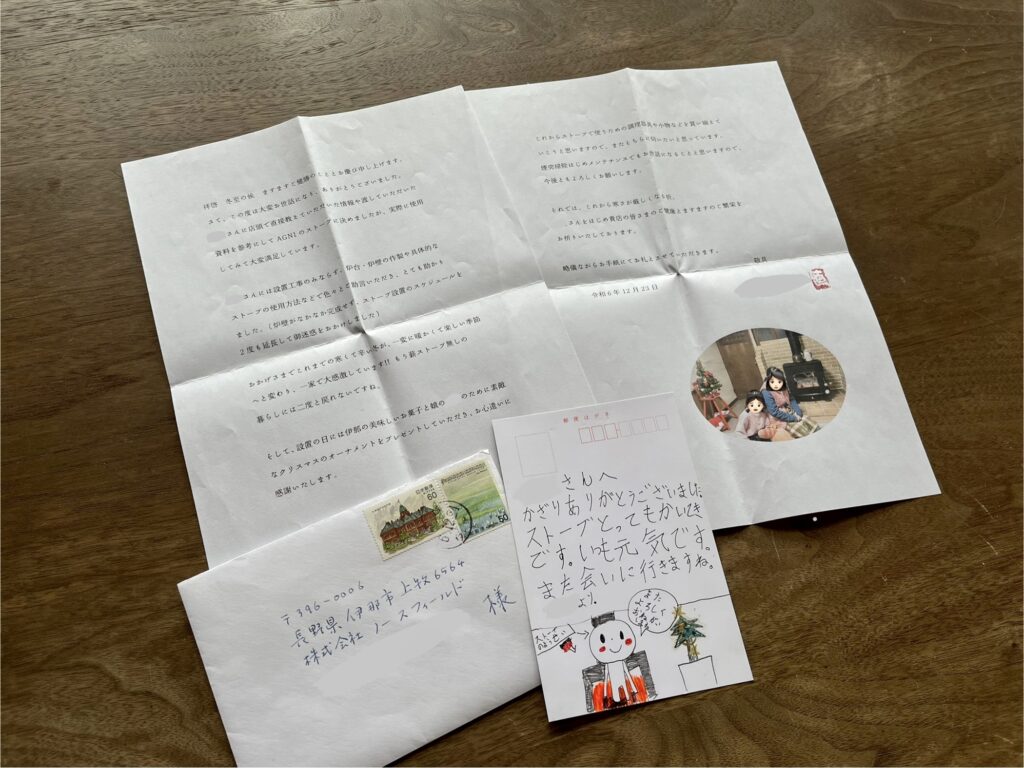 拝啓　冬至の候　ますますご健勝のこととお慶び申し上げます。
さて、この度は大変お世話になり、ありがとうございました。
さんに店頭で直接教えていただいた情報や渡していただいた
資料を参考にして AGNI のストーブに決めましたが、実際に使用
してみて大変満足しています。
さんには設置工事のみならず、炉台・炉壁の作製や具体的な
ストーブの使用方法などで色々とご助言いただき、とても助かり
ました。(炉壁がなかなか完成せず、ストーブ設置のスケジュールを
2 度も延長して御迷惑をおかけしました)
おかげさまでこれまでの寒くて辛い冬が、一変に暖かくて楽しい季節
へと変わり、一家で大感激しています!! もう薪ストーブ無しの
暮らしには二度と戻れないですね。
そして、設置の日には伊那の美味しいお菓子と娘の　のために素敵
なクリスマスのオーナメントをプレゼントしていただき、お心遣いに
感謝いたします。
これからストーブで使うための調理器具や小物などを買い揃えて
いこうと思いますので、またそちらに伺いたいと思っています。
煙突掃除はじめメンテナンスでもお世話になることと思いますので、
今後ともよろしくお願いします。
それでは、これから寒さが厳しくなる折、
さんをはじめ貴店の皆さまのご健康とますますのご繁栄を
お祈りいたしております。
略儀ながらお手紙にてお礼とさせていただきます。
敬具
令和 6 年 12 月 23 日
日本郵便
60
60
〒396-0006
長野県伊那市上牧6564
株式会社 ノースフィールド
様
郵便はがき
さんへ
かざりありがとうございました
ストーブとってもかいてき
です。いつも元気です。
また会いに行きますね。
より